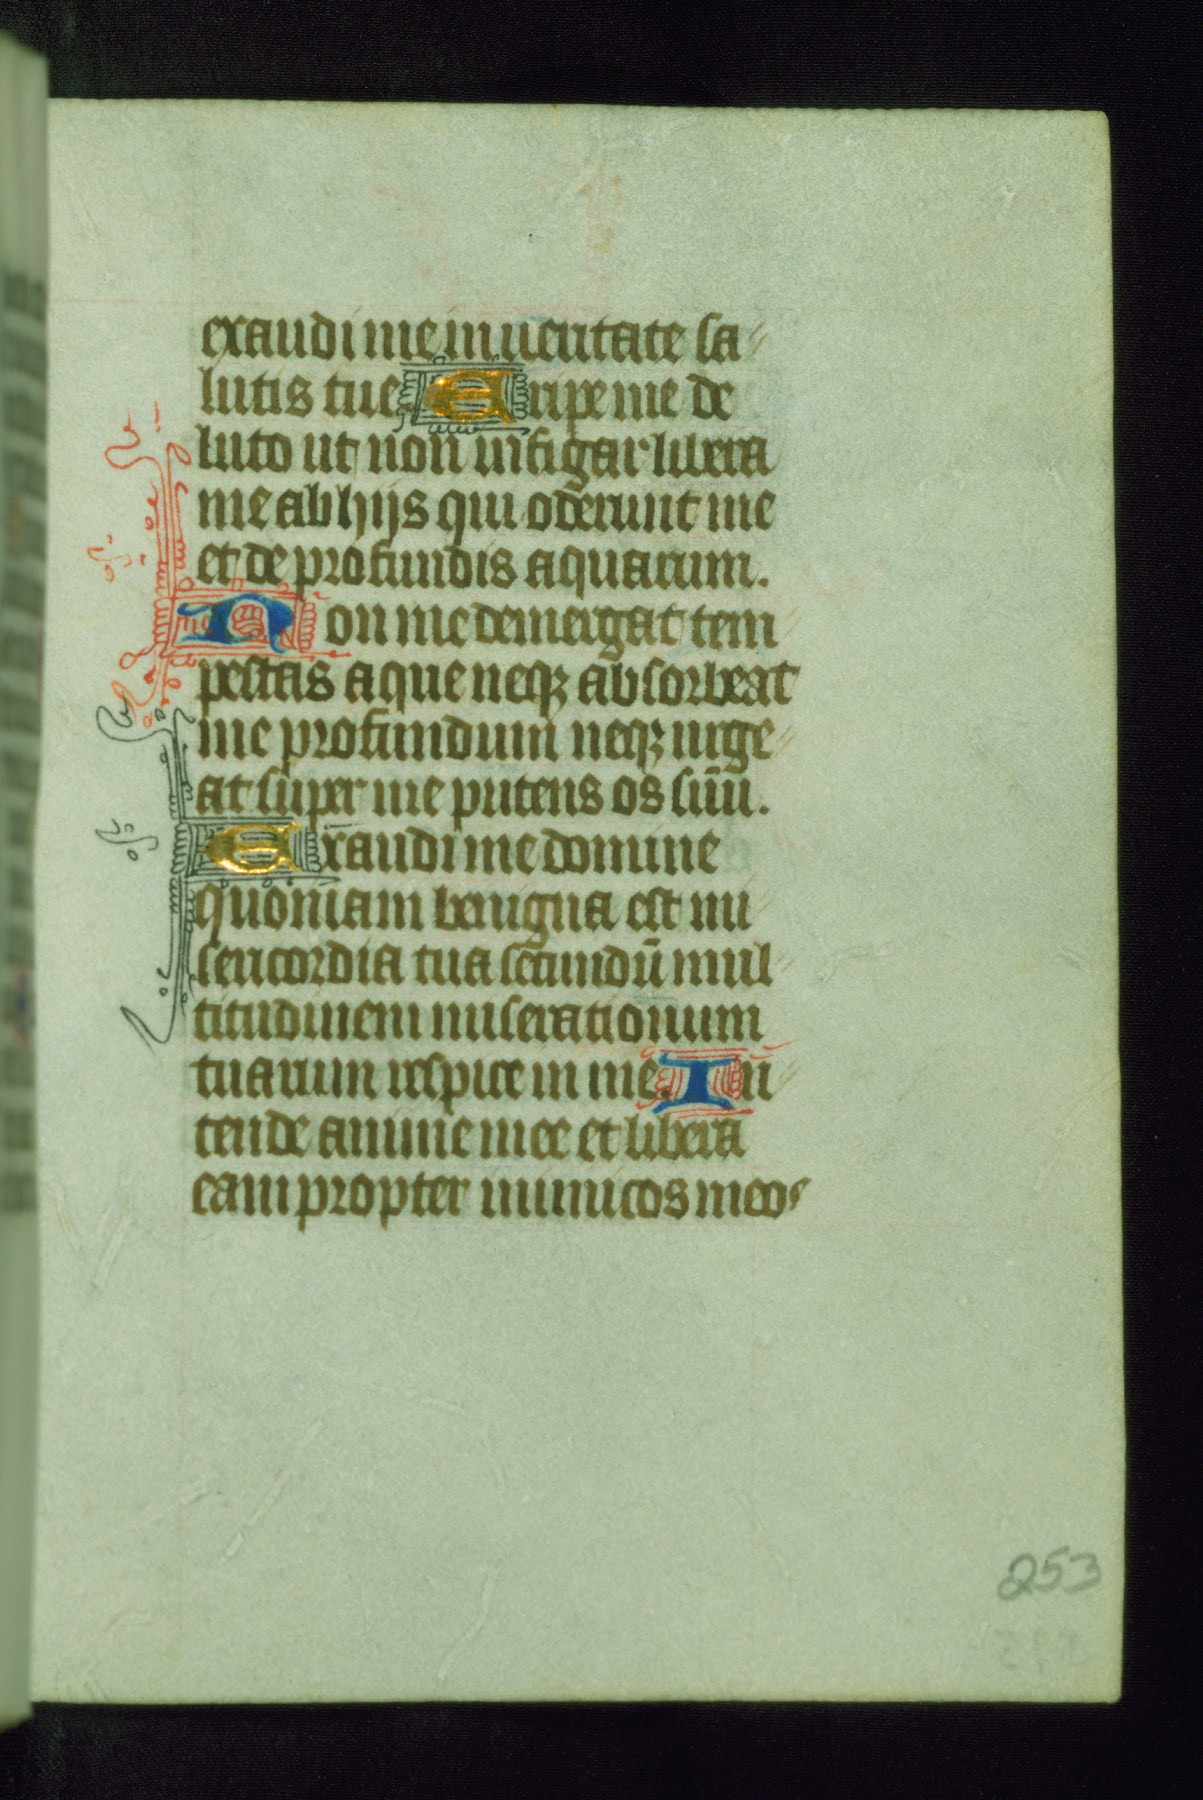 exaudi me in ueritate sa
lutis tue Eripe me de
luto ut non infigar libera
me ab hijs qui oderunt me
et de profundis aquarum.
Non me demergat tem
pestas aque neqꝫ absorbeat
me profundum neqꝫ urge
at super me puteus os suū.
Exaudi me domine
quoniam benigna est mi
sericordia tua secundū mul
titudinem miserationum
tuarum respice in me. In
tende anime mee et libera
eam propter inimicos meos
253